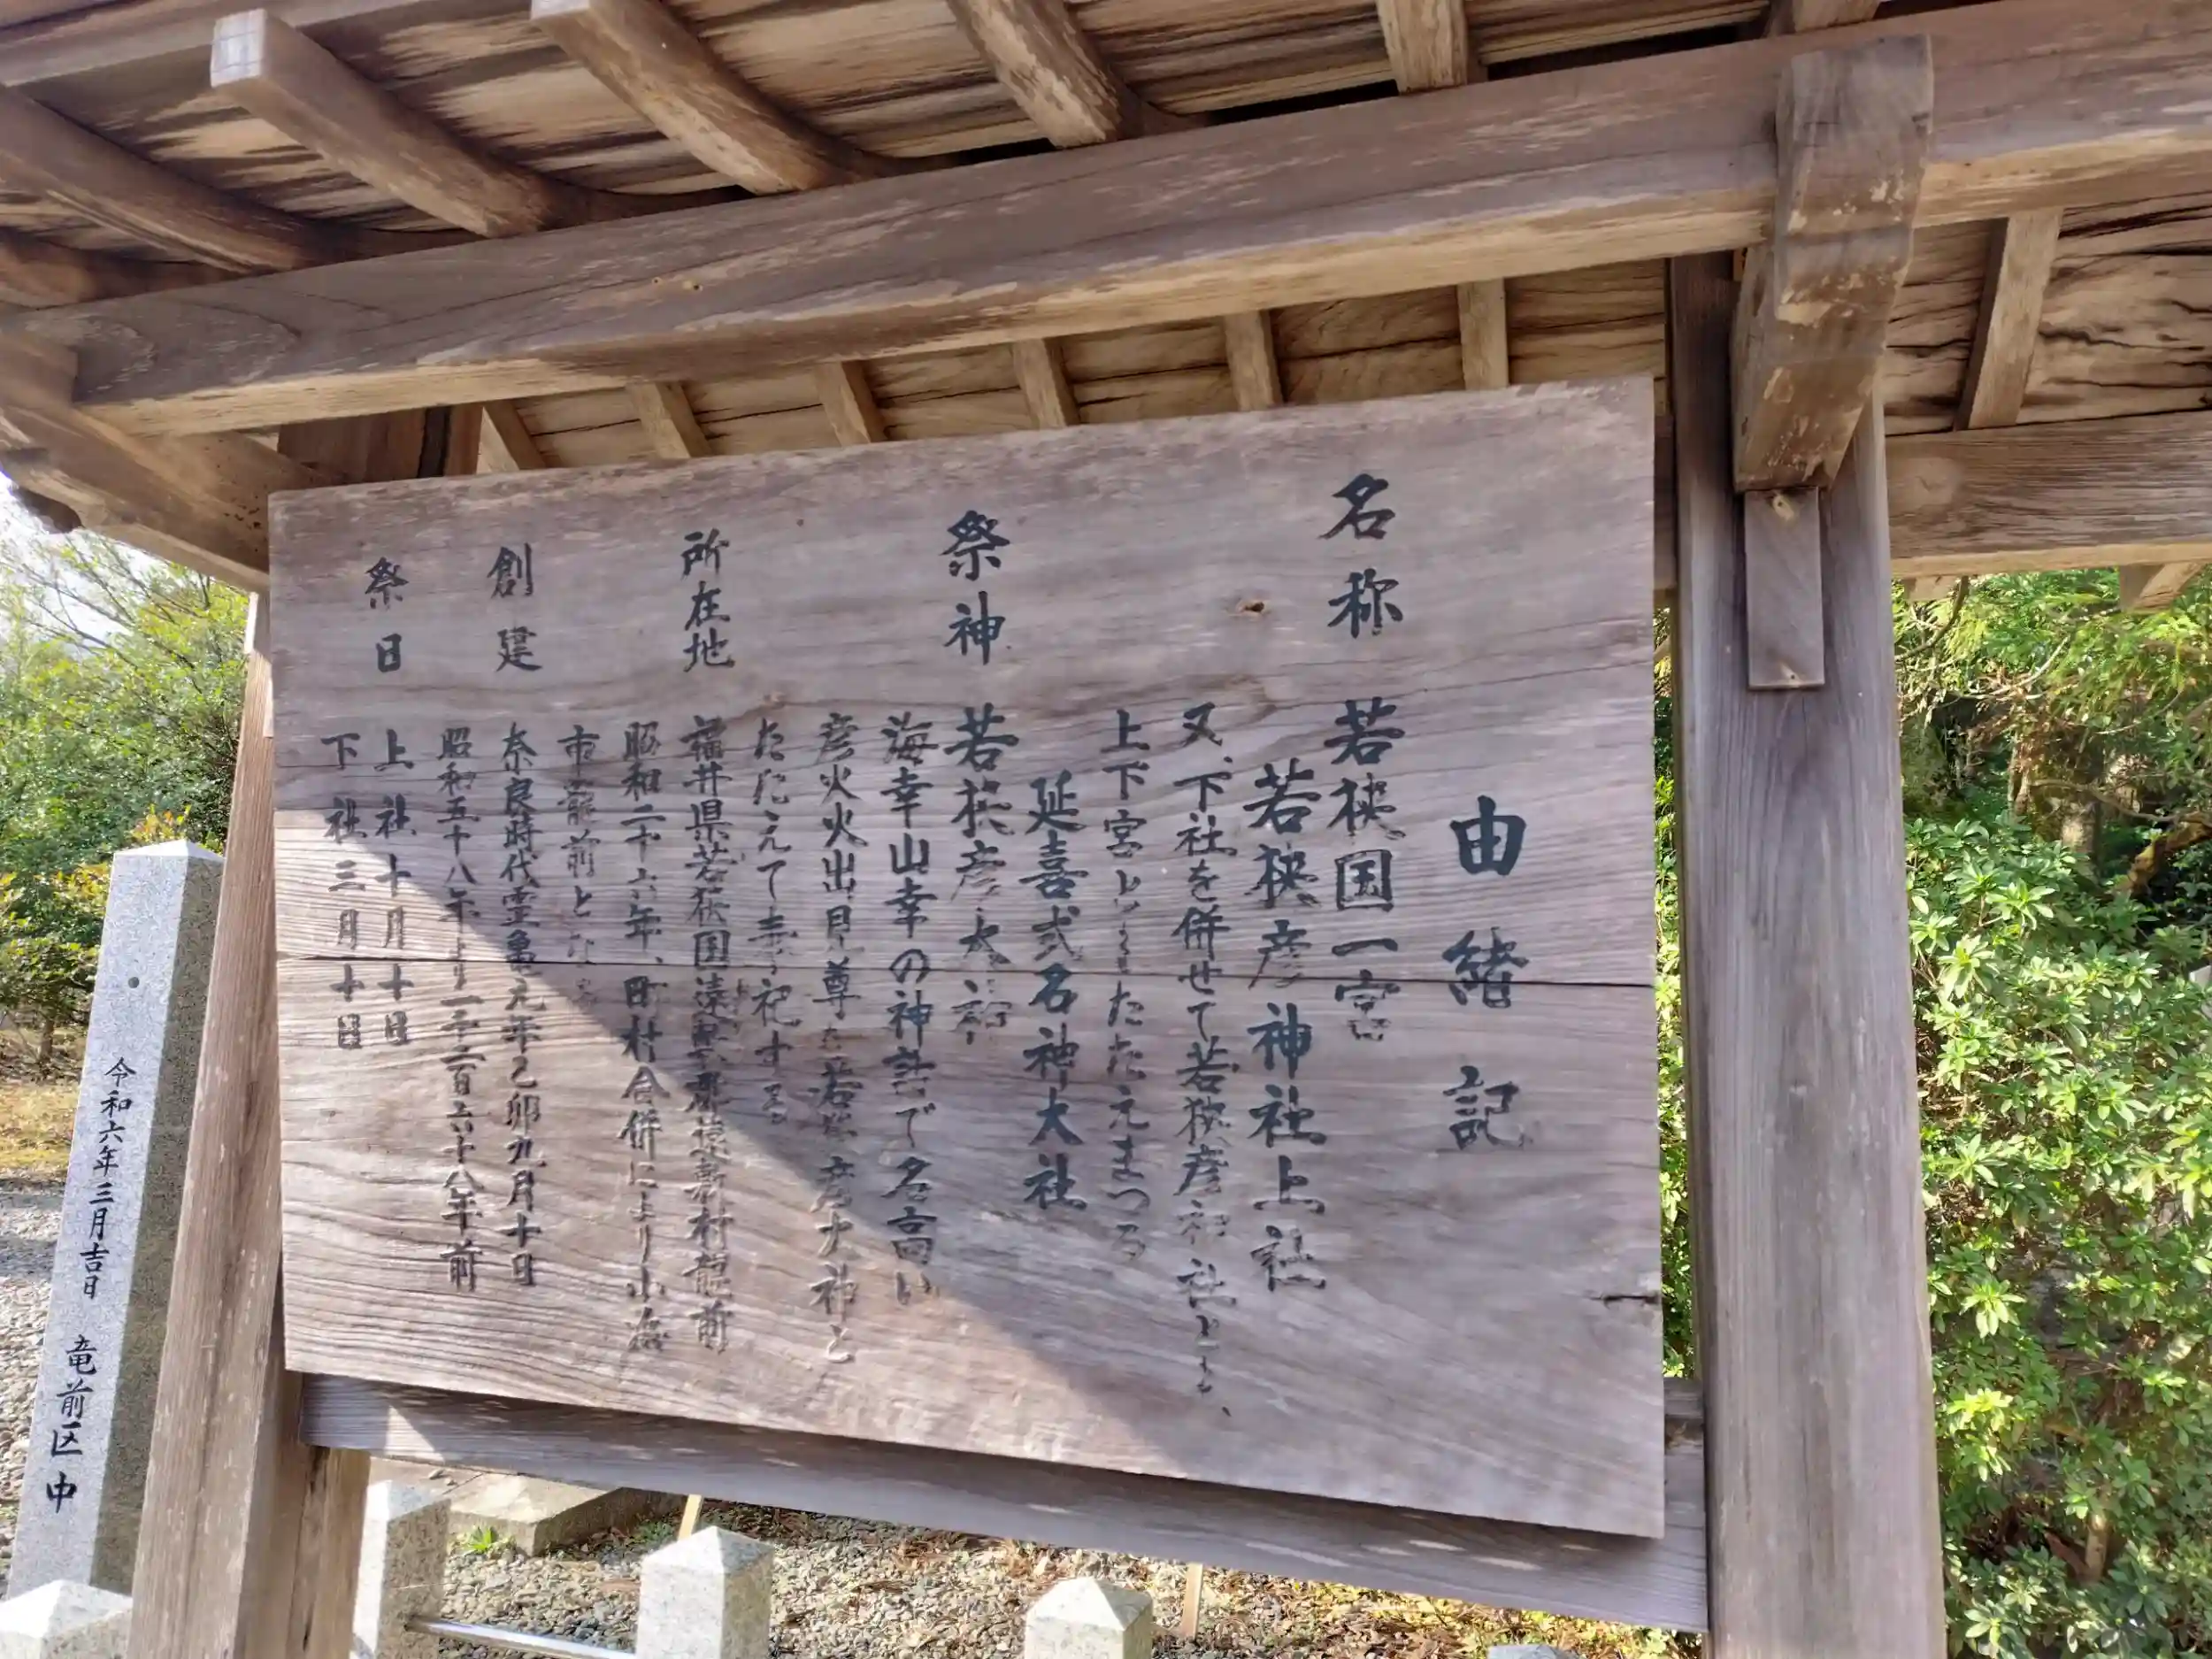 由緒記
名称 若狭国一宮
若狭彦神社上社
又、下社を併せて若狭彦神社とも、
上下宮ともたたえまつる
延喜式名神大社
祭神 若狭彦大神
海幸山幸の神話で名高い
彦火火出見尊を若狭彦大神と
たたえて奉祀する
所在地 福井県若狭国遠敷郡遠敷村龍前
昭和二十六年、町村合併により小浜
市龍前となる
創建 奈良時代霊亀元年乙卯九月十日
昭和五十八年より一千二百六十八年前
祭日 上社十月十日
下社三月十日
令和六年三月吉日 竜前区中